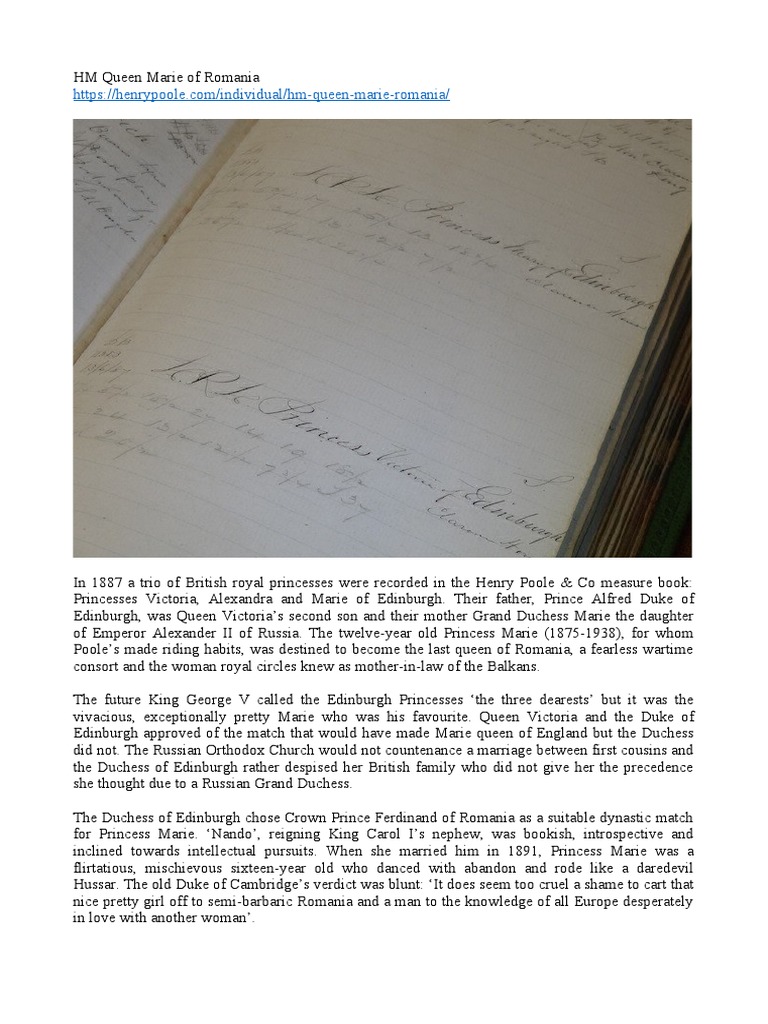 HM Queen Marie of Romania
https://henrypoole.com/individual/hm-queen-marie-romania/
H.R.H. Princess Mary of Edinburgh
H.R.H. Princess Victoria of Edinburgh
In 1887 a trio of British royal princesses were recorded in the Henry Poole & Co measure book:
Princesses Victoria, Alexandra and Marie of Edinburgh. Their father, Prince Alfred Duke of
Edinburgh, was Queen Victoria’s second son and their mother Grand Duchess Marie the daughter
of Emperor Alexander II of Russia. The twelve-year old Princess Marie (1875-1938), for whom
Poole’s made riding habits, was destined to become the last queen of Romania, a fearless wartime
consort and the woman royal circles knew as mother-in-law of the Balkans.
The future King George V called the Edinburgh Princesses ‘the three dearests’ but it was the
vivacious, exceptionally pretty Marie who was his favourite. Queen Victoria and the Duke of
Edinburgh approved of the match that would have made Marie queen of England but the Duchess
did not. The Russian Orthodox Church would not countenance a marriage between first cousins and
the Duchess of Edinburgh rather despised her British family who did not give her the precedence
she thought due to a Russian Grand Duchess.
The Duchess of Edinburgh chose Crown Prince Ferdinand of Romania as a suitable dynastic match
for Princess Marie. ‘Nando’, reigning King Carol I’s nephew, was bookish, introspective and
inclined towards intellectual pursuits. When she married him in 1891, Princess Marie was a
flirtatious, mischievous sixteen-year old who danced with abandon and rode like a daredevil
Hussar. The old Duke of Cambridge’s verdict was blunt: ‘It does seem too cruel a shame to cart that
nice pretty girl off to semi-barbaric Romania and a man to the knowledge of all Europe desperately
in love with another woman’.